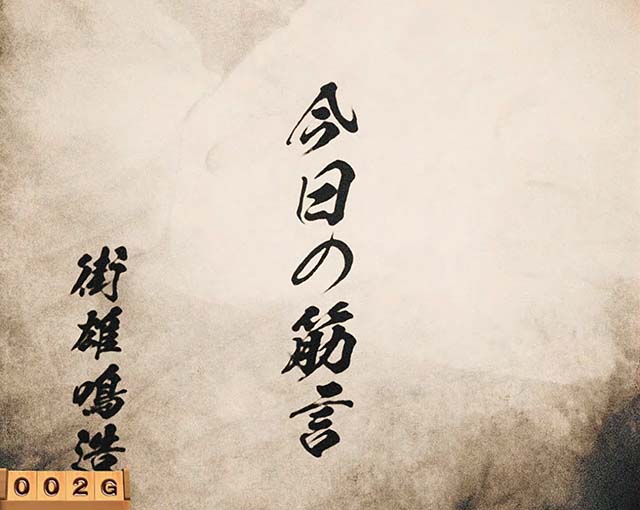 今日の筋言
街雄鳴造
002G